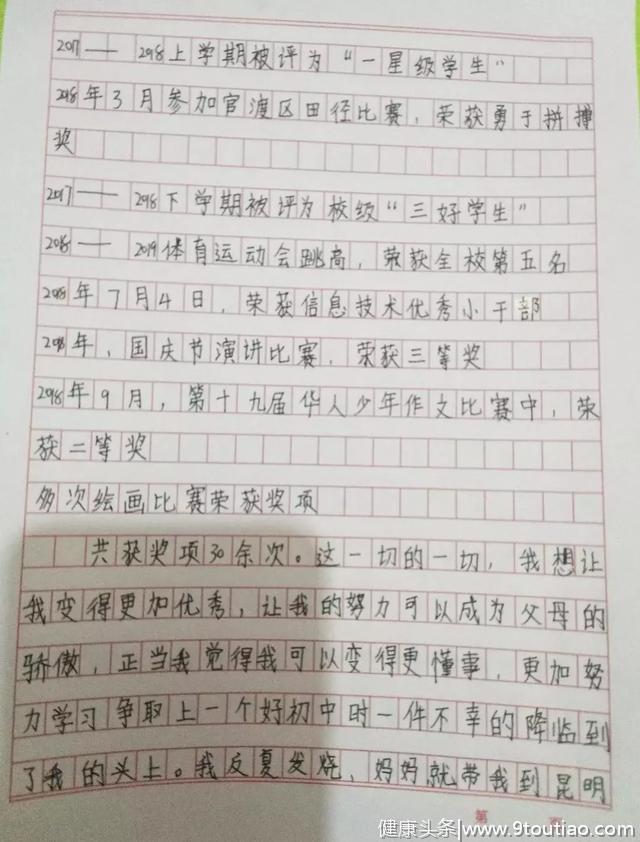 2017—— 2018上学期被评为“一星级学生”
2018年3月参加官渡区田径比赛，荣获勇于拼搏
奖
2017—— 2018下学期被评为校级“三好学生”
2018—— 2019体育运动会跳高，荣获全校第五名
2018年7月4日，荣获信息技术优秀小干部
2018年，国庆节演讲比赛，荣获三等奖
2018年9月，第十九届华人少年作文比赛中，荣
获二等奖
多次绘画比赛荣获奖项
共获奖项30余次。这一切的一切，我想让
我变得更加优秀，让我的努力可以成为父母的
骄傲，正当我觉得我可以变得更懂事，更加努
力学习争取上一个好初中时一件不幸的降临到
了我的头上。我反复发烧，妈妈就带我到昆明
第 页
健康头条|www.9toutiao.com